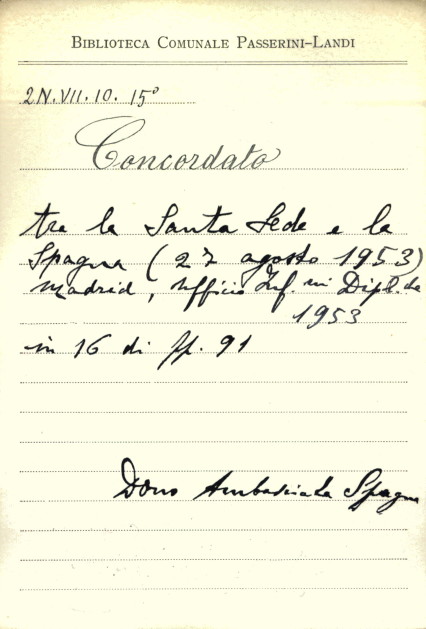 BIBLIOTECA COMUNALE PASSERINI-LANDI
2N.VII.10. 15°
Concordato
tra la Santa Sede e la
Spagna (27 agosto 1953)
Madrid, Ufficio Inf. Dipl.
1953
in 16 di pp. 91
Dono Ambasciata Spagna